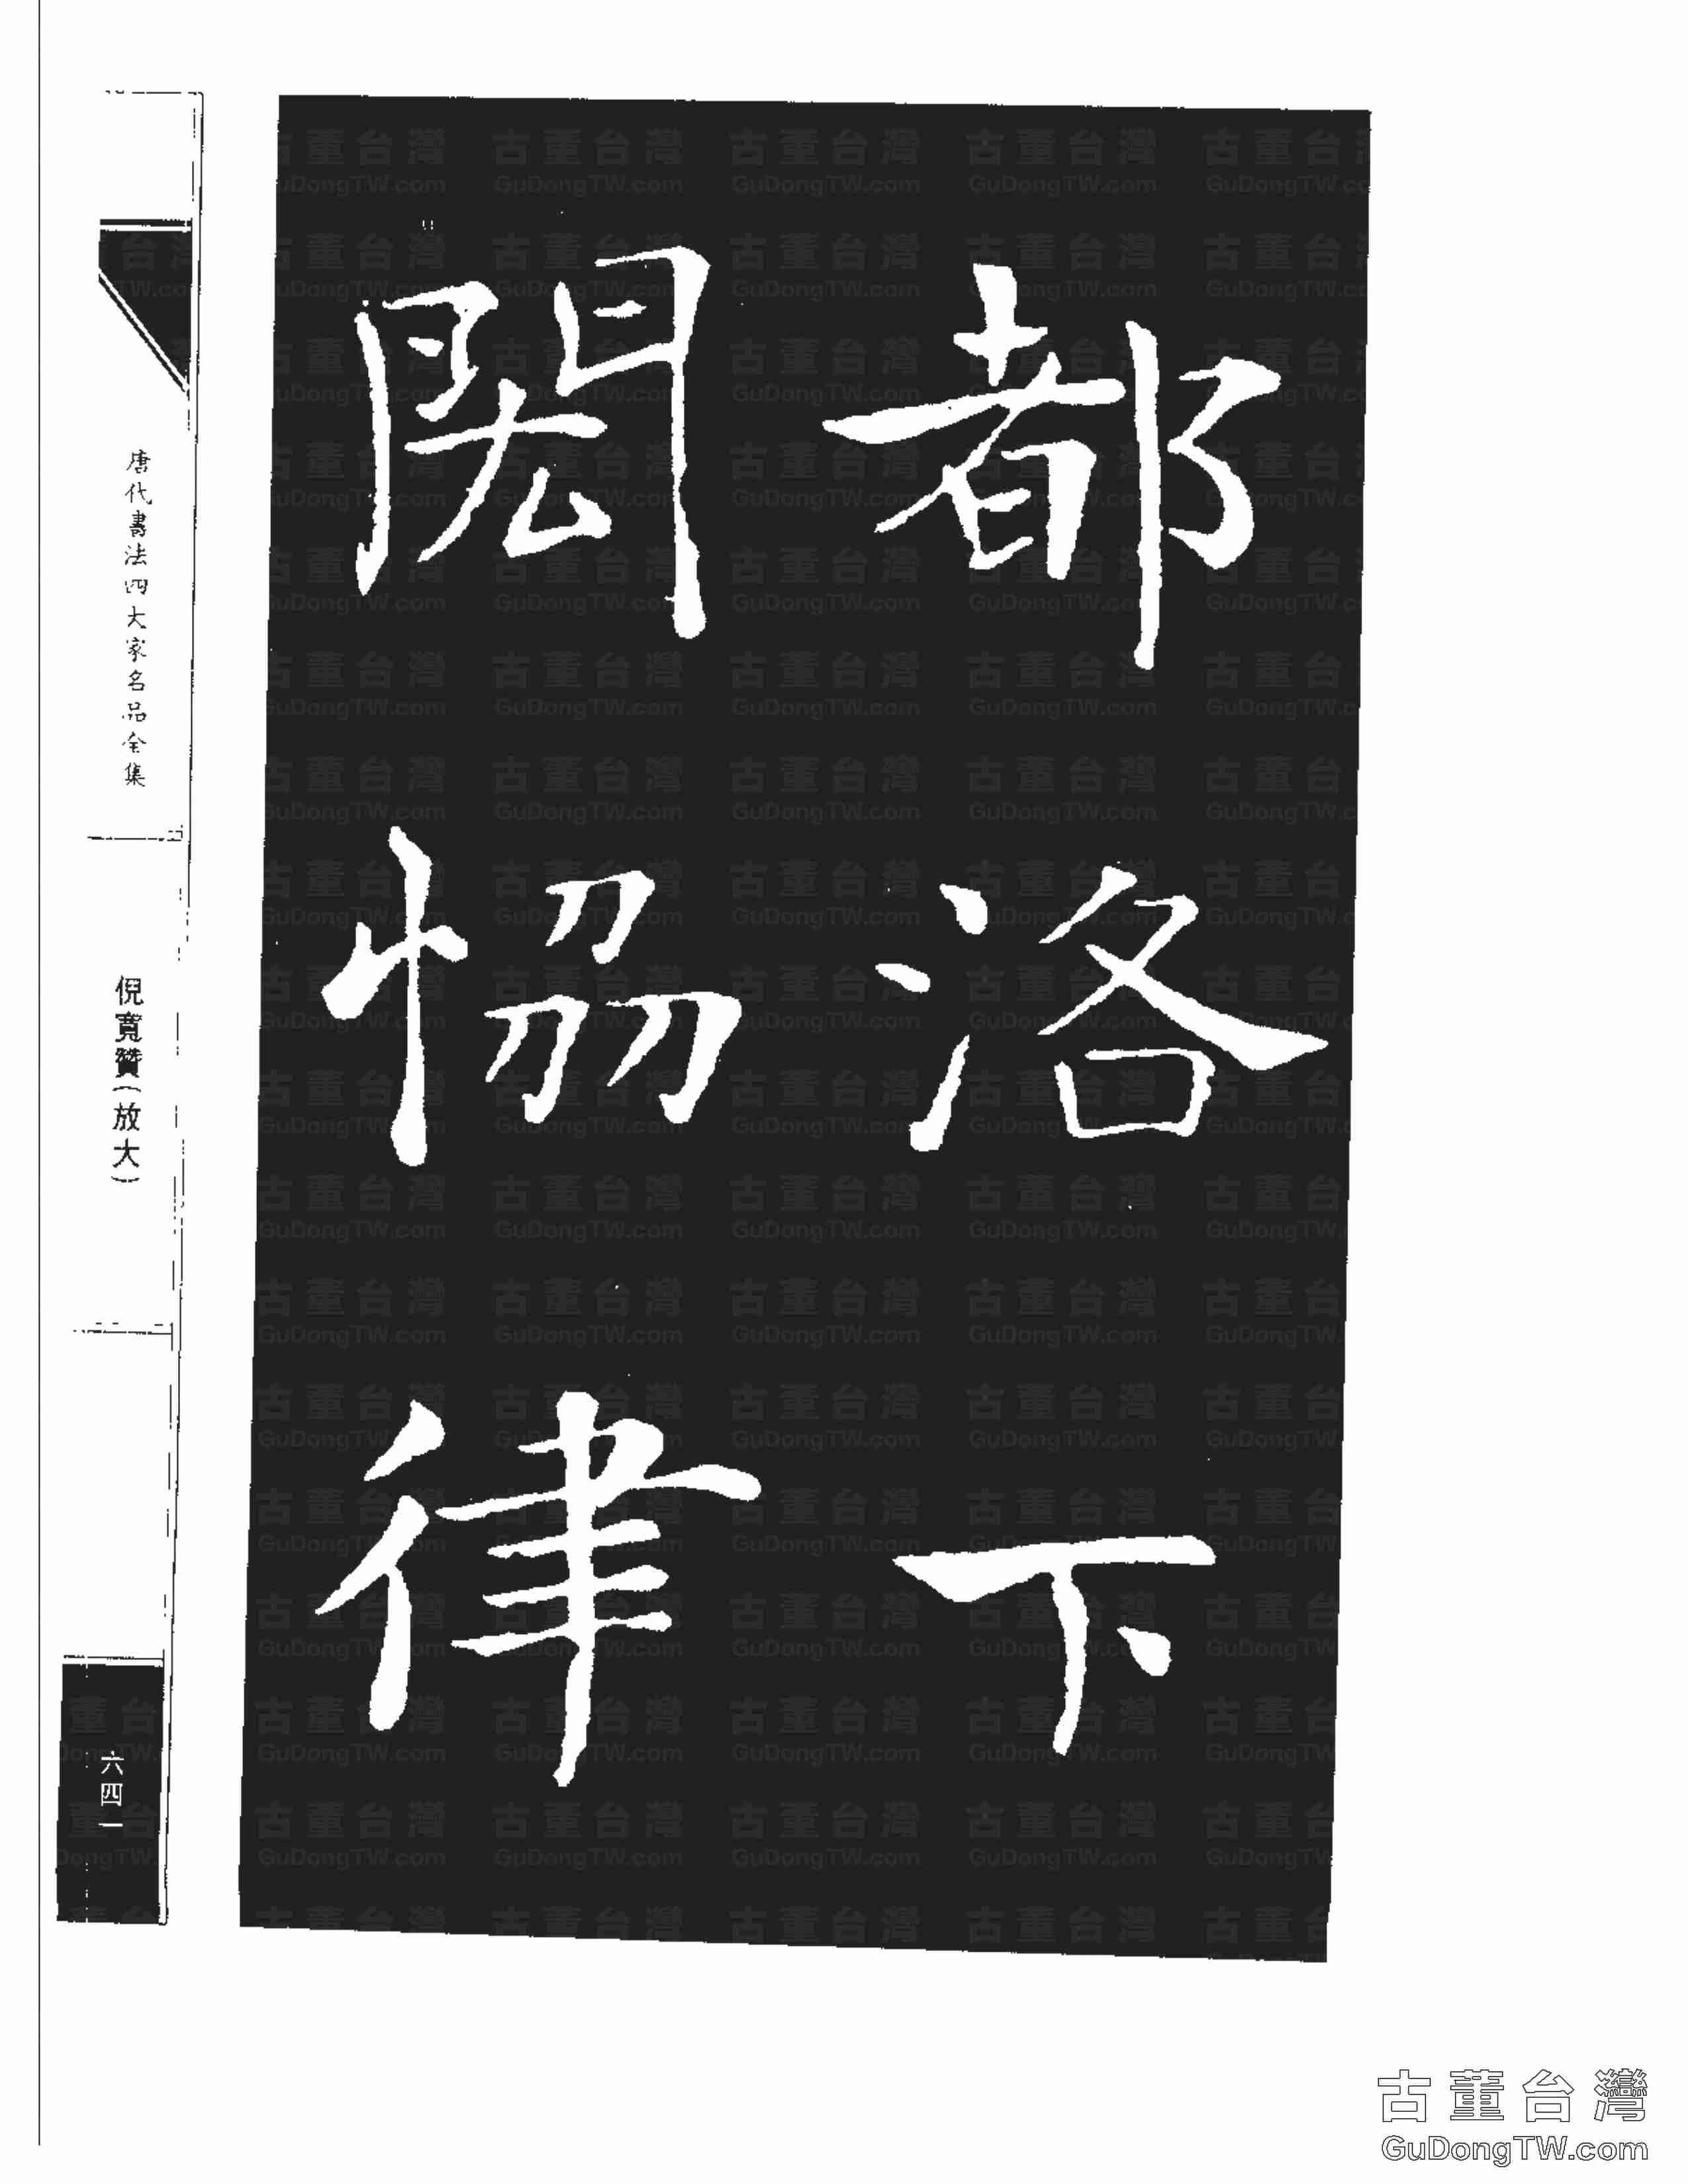 都洛下
閎恊律
唐代書法四大家名品全集
倪寬贊(放大)
六四一
古董台灣
GuDongTW.com